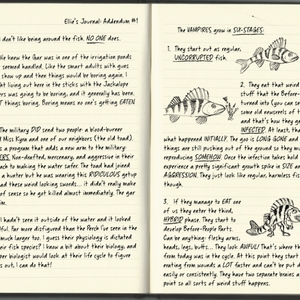 Ellie's Journal: Addendum #1
don't like being around the fish. NO ONE does.
We knew the Guv was in one of the intriguing ponds
seemed handled. Like the smart adults with guns
show up and then things would be boring again. I
t living out here in the sticks with the Jackalope
rs was going to be boring, and it generally has been.
f things boring. Boring means no one's getting EATEN
The military DID send two people: a blood-burner
Miss Kyra and one of our neighbors (the old toad).
s a program that adds a new arm to the military:
ERS. Non-drafted, mercenary, and aggressive in their
ach to making the water safer. The toad had joined
a hunter but he was wearing this RIDICULOUS getup
d these weird looking swords... it didn't really make
of sense so he got killed almost immediately. The gar
im.
I hadn't seen it outside of the water and it looked
ful. Far more disfigured than the Perch I've seen in the
much larger too. I guess their physiology is dictated
r base fish species? I know a bit about their biology, and
per biologist would look at their life cycle to figure
out, I can do that!
The VAMPIRES grow in SIX-STAGES:
1. They start out as regular,
UNCORRUPTED fish.
2. They eat that weird
stuff that the Before-
turned into (you can see
some old newsreels of t
and that's how they ge
INFECTED. At least, tha
what happened INITIALLY. The goo is LONG GONE and
things are still pouring out of the ground so they mu
reproducing SOMEHOW. Once the infection takes hold
experience a pretty significant growth spike in SIZE a
AGGRESSION. They just look like regular, harmless fish
though.
3. If they manage to EAT one
of us they enter the third,
HYBRID phase. They start to
develop Before-People Parts.
Can be anything: fleshy arms,
heads, legs, butts... They look AWFUL! That's where th
from today was in the cycle. At this point they star
rooting from wounds a LOT faster and can't be put d
easily or consistently. They have two separate brains a
point so all sorts of weird stuff happens.